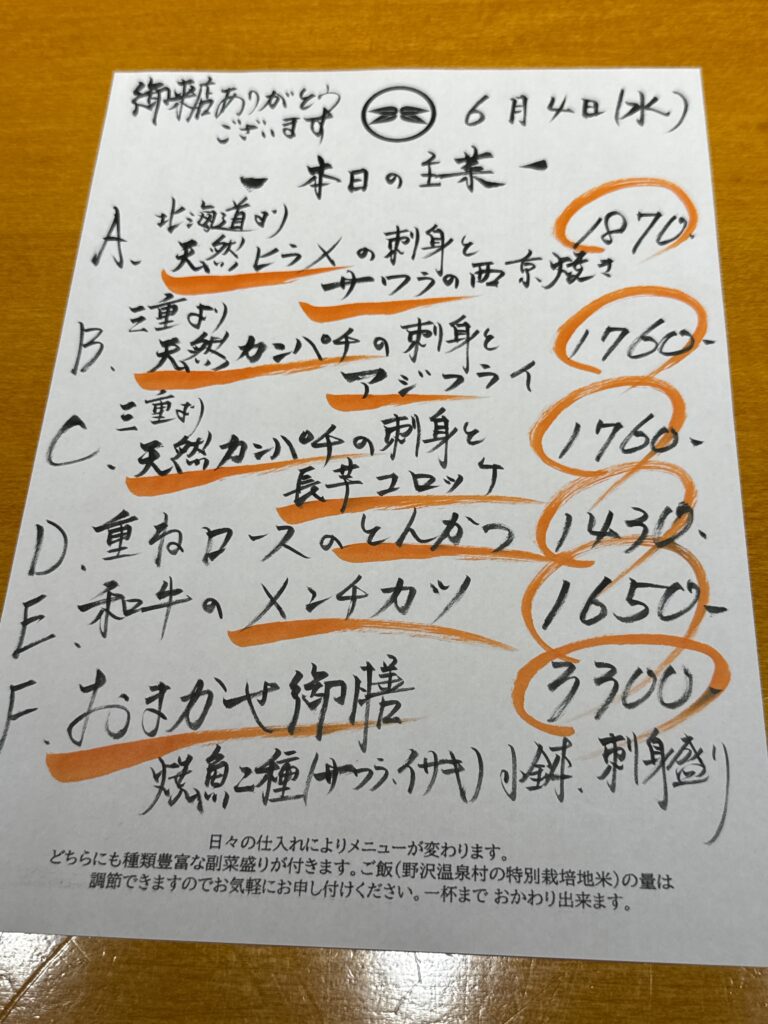 御来店ありがとう
ございます
6月4日(水)
ー 本日の主菜 ー
A. 北海道より
天然ヒラメの刺身と
サワラの西京焼き
1870-
B. 三重より
天然カンパチの刺身と
アジフライ
1760-
C. 三重より
天然カンパチの刺身と
長芋コロッケ
1760-
D. 重ねロースのとんかつ 1430-
E. 和牛のメンチカツ 1650-
F. おまかせ御膳 3300-
焼魚二種(サワラ、イサキ)小鉢、刺身盛り
日々の仕入れによりメニューが変わります。
どちらにも種類豊富な副菜盛りが付きます。ご飯(野沢温泉村の特別栽培地米)の量は
調節できますのでお気軽にお申し付けください。一杯まで おかわり出来ます。